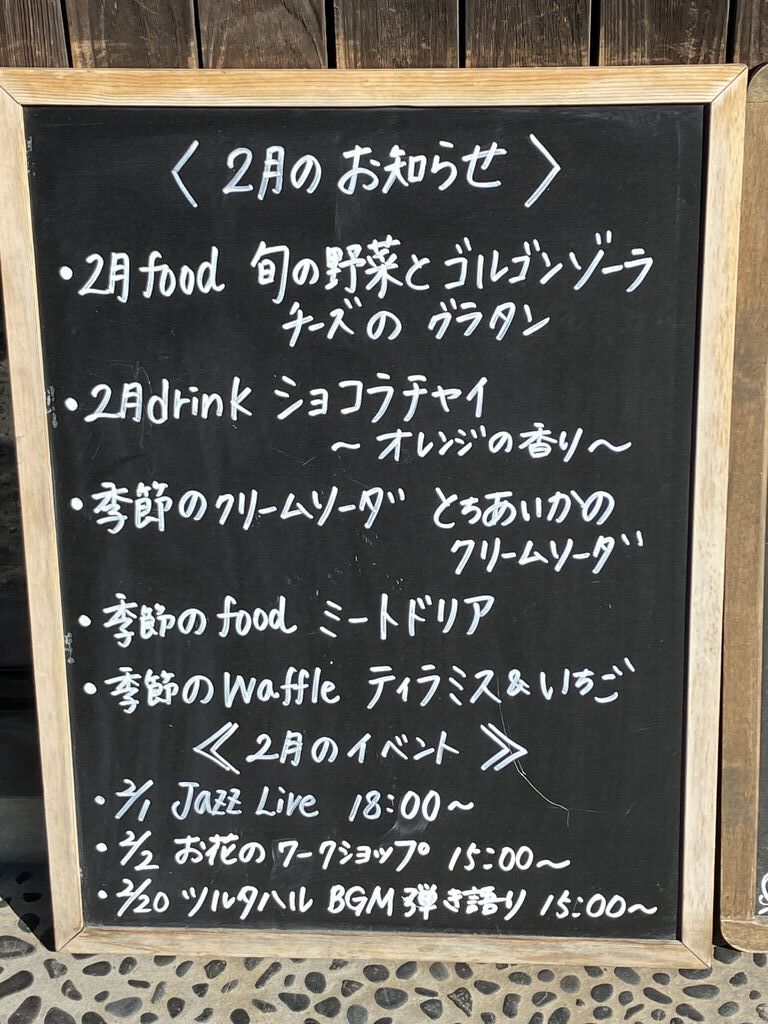 〈 2月の お知らせ 〉
・2月food 旬の野菜とゴルゴンゾーラ
チーズの グラタン
・2月drink ショコラチャイ
〜オレンジの香り〜
・季節のクリームソーダ とちあいかの
クリームソーダ
・季節のfood ミートドリア
・季節のwaffle ティラミス&いちご
≪ 2月のイベント ≫
・2/1 Jazz Live 18:00〜
・2/2 お花のワークショップ 15:00〜
・2/20 ツルタハル BGM弾き語り 15:00〜